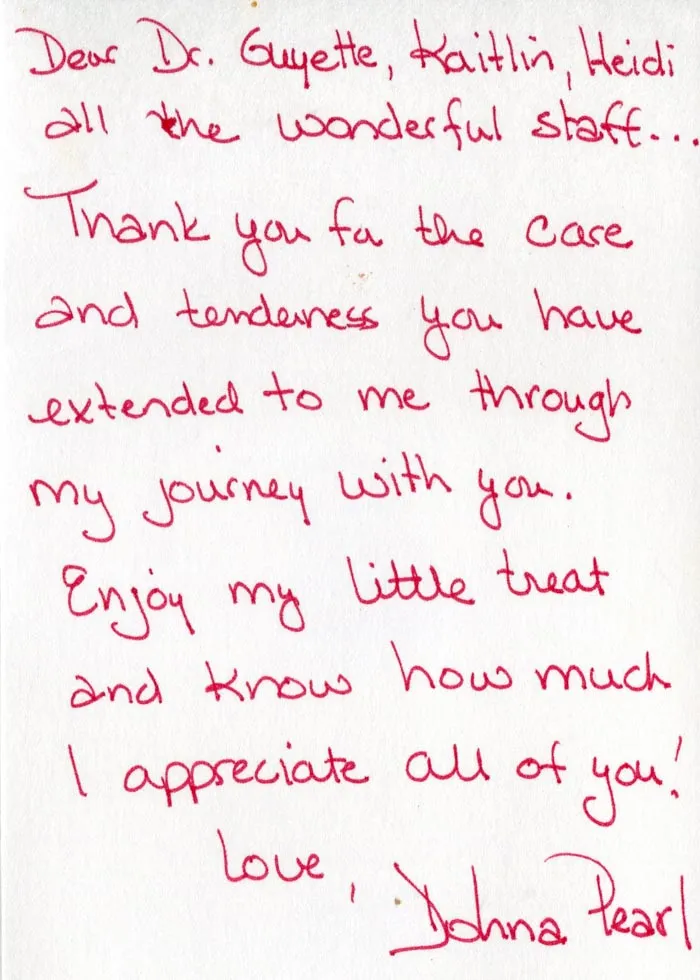 Dear Dr. Guyette, Kaitlin, Heidi
all the wonderful staff...
Thank you for the care
and tenderness you have
extended to me through
my journey with you.
Enjoy my little treat
and know how much
I appreciate all of you!
Love,
Dohna Pearl